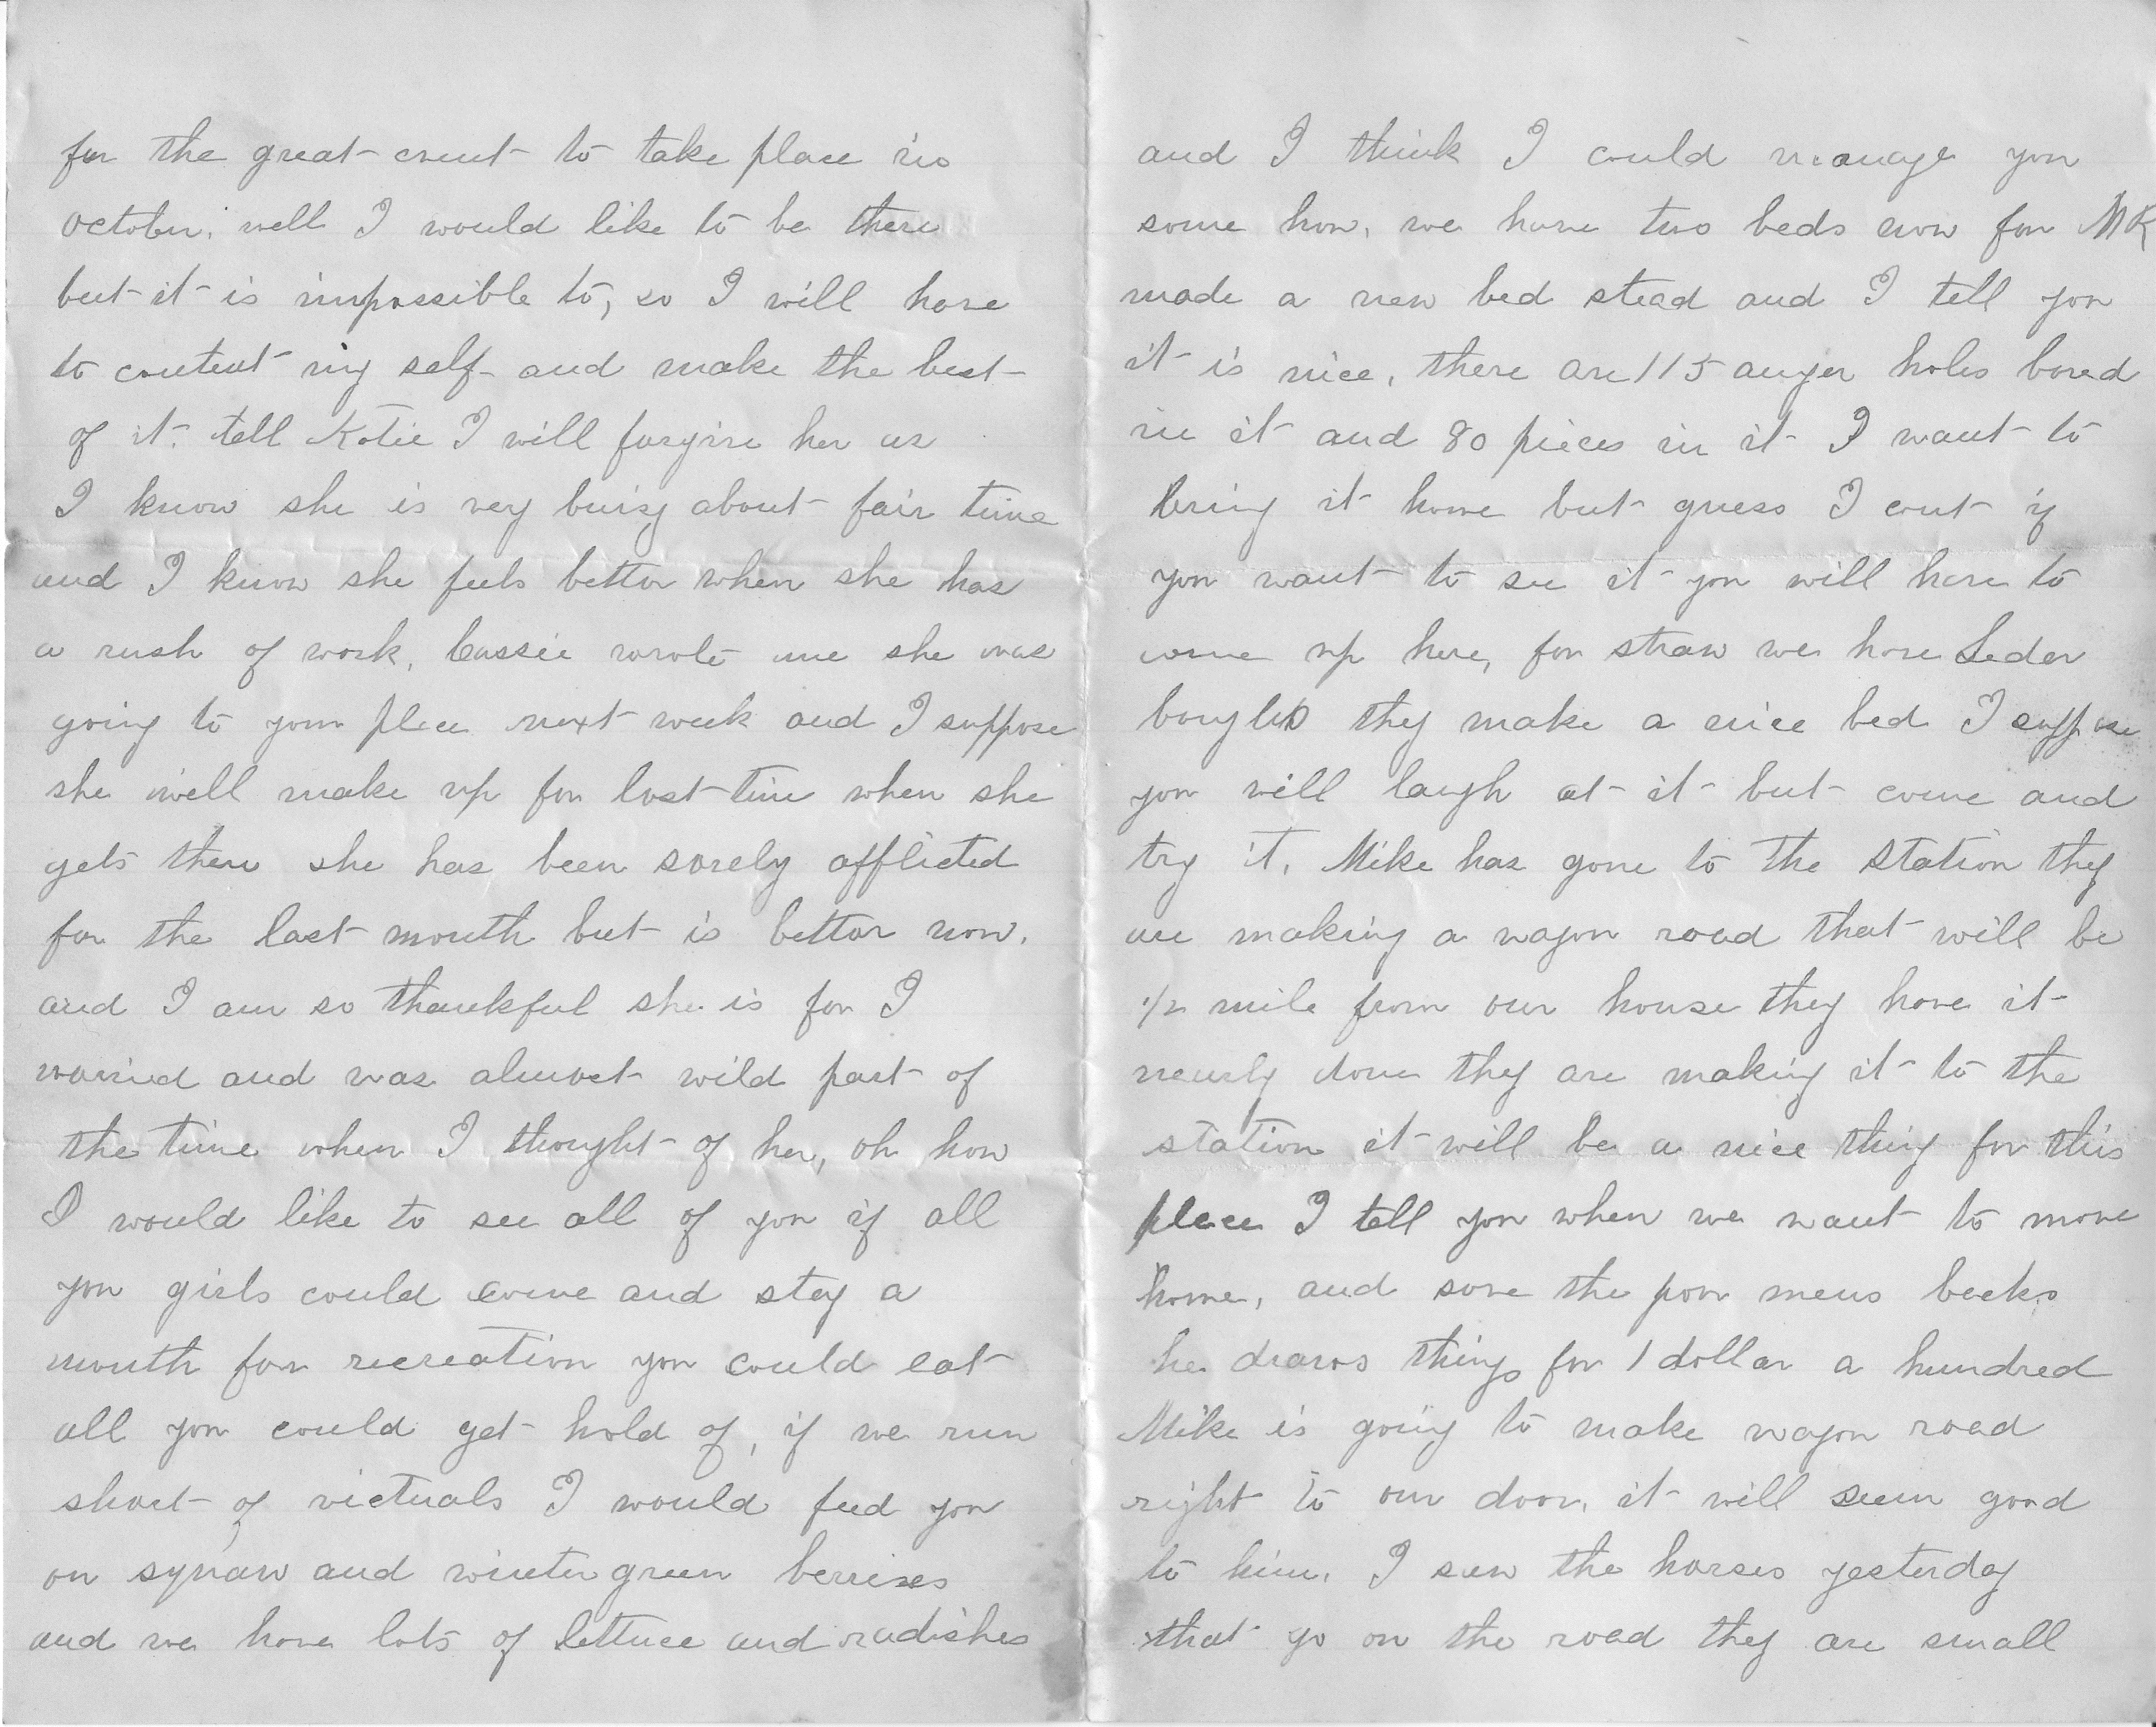 for the great event to take place in
October. well I would like to be there
but it is impossible to, so I will have
to content my self and make the best
of it. tell Katie I will forgive her as
I know she is very buisy about fair time
and I know she feels better when she has
a rush of work, Cassie wrote me she was
going to your place next week and I suppose
she will make up for lost time when she
gets there she has been sorely afflicted
for the last month but is better now.
and I am so thankful she is for I
worried and was almost wild part of
the time when I thought of her, oh how
I would like to see all of you if all
you girls could come and stay a
month for recreation you could eat
all you could get hold of, if we run
short of victuals I would feed you
on and winter green berries
and we have lots of lettuce and radishes
and I think I could manage you
some how, we have two beds now for MK
made a new bed stead and I tell you
it is nice, there are 115 auger holes bored
in it and 80 pieces in it I want to
bring it home but guess I cant if
you want to see it you will have to
come up here, for straw we have Seder
boughs they make a nice bed I suppose
you will laugh at it but come and
try it, Mike has gone to the station they
are making a wagon road that will be
1/2 mile from our house they have it
nearly done they are making it to the
station it will be a nice thing for this
place I tell you when we want to move
home, and save the poor mens backs
he draws things for 1 dollar a hundred
Mike is going to make wagon road
right to our door, it will seem good
to him. I seen the horses yesterday
that go on the road they are small